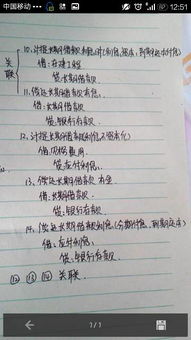 中国移动
12:51
关联
10.计提长期借款利息(计入在建工程成本,到期还本付息)
借:在建工程
贷:长期借款
11.偿还长期借款本息.
借:长期借款
贷:银行存款.
12.计提长期借款利息(不资本化)
借:财务费用
贷:应付利息.
13.偿还长期借款本金
借:长期借款
贷:银行存款.
14.偿还长期借款利息(分期付息,到期还本)
借:应付利息
贷:银行存款
⑫ ⑬ ⑭ 关联.
1/1